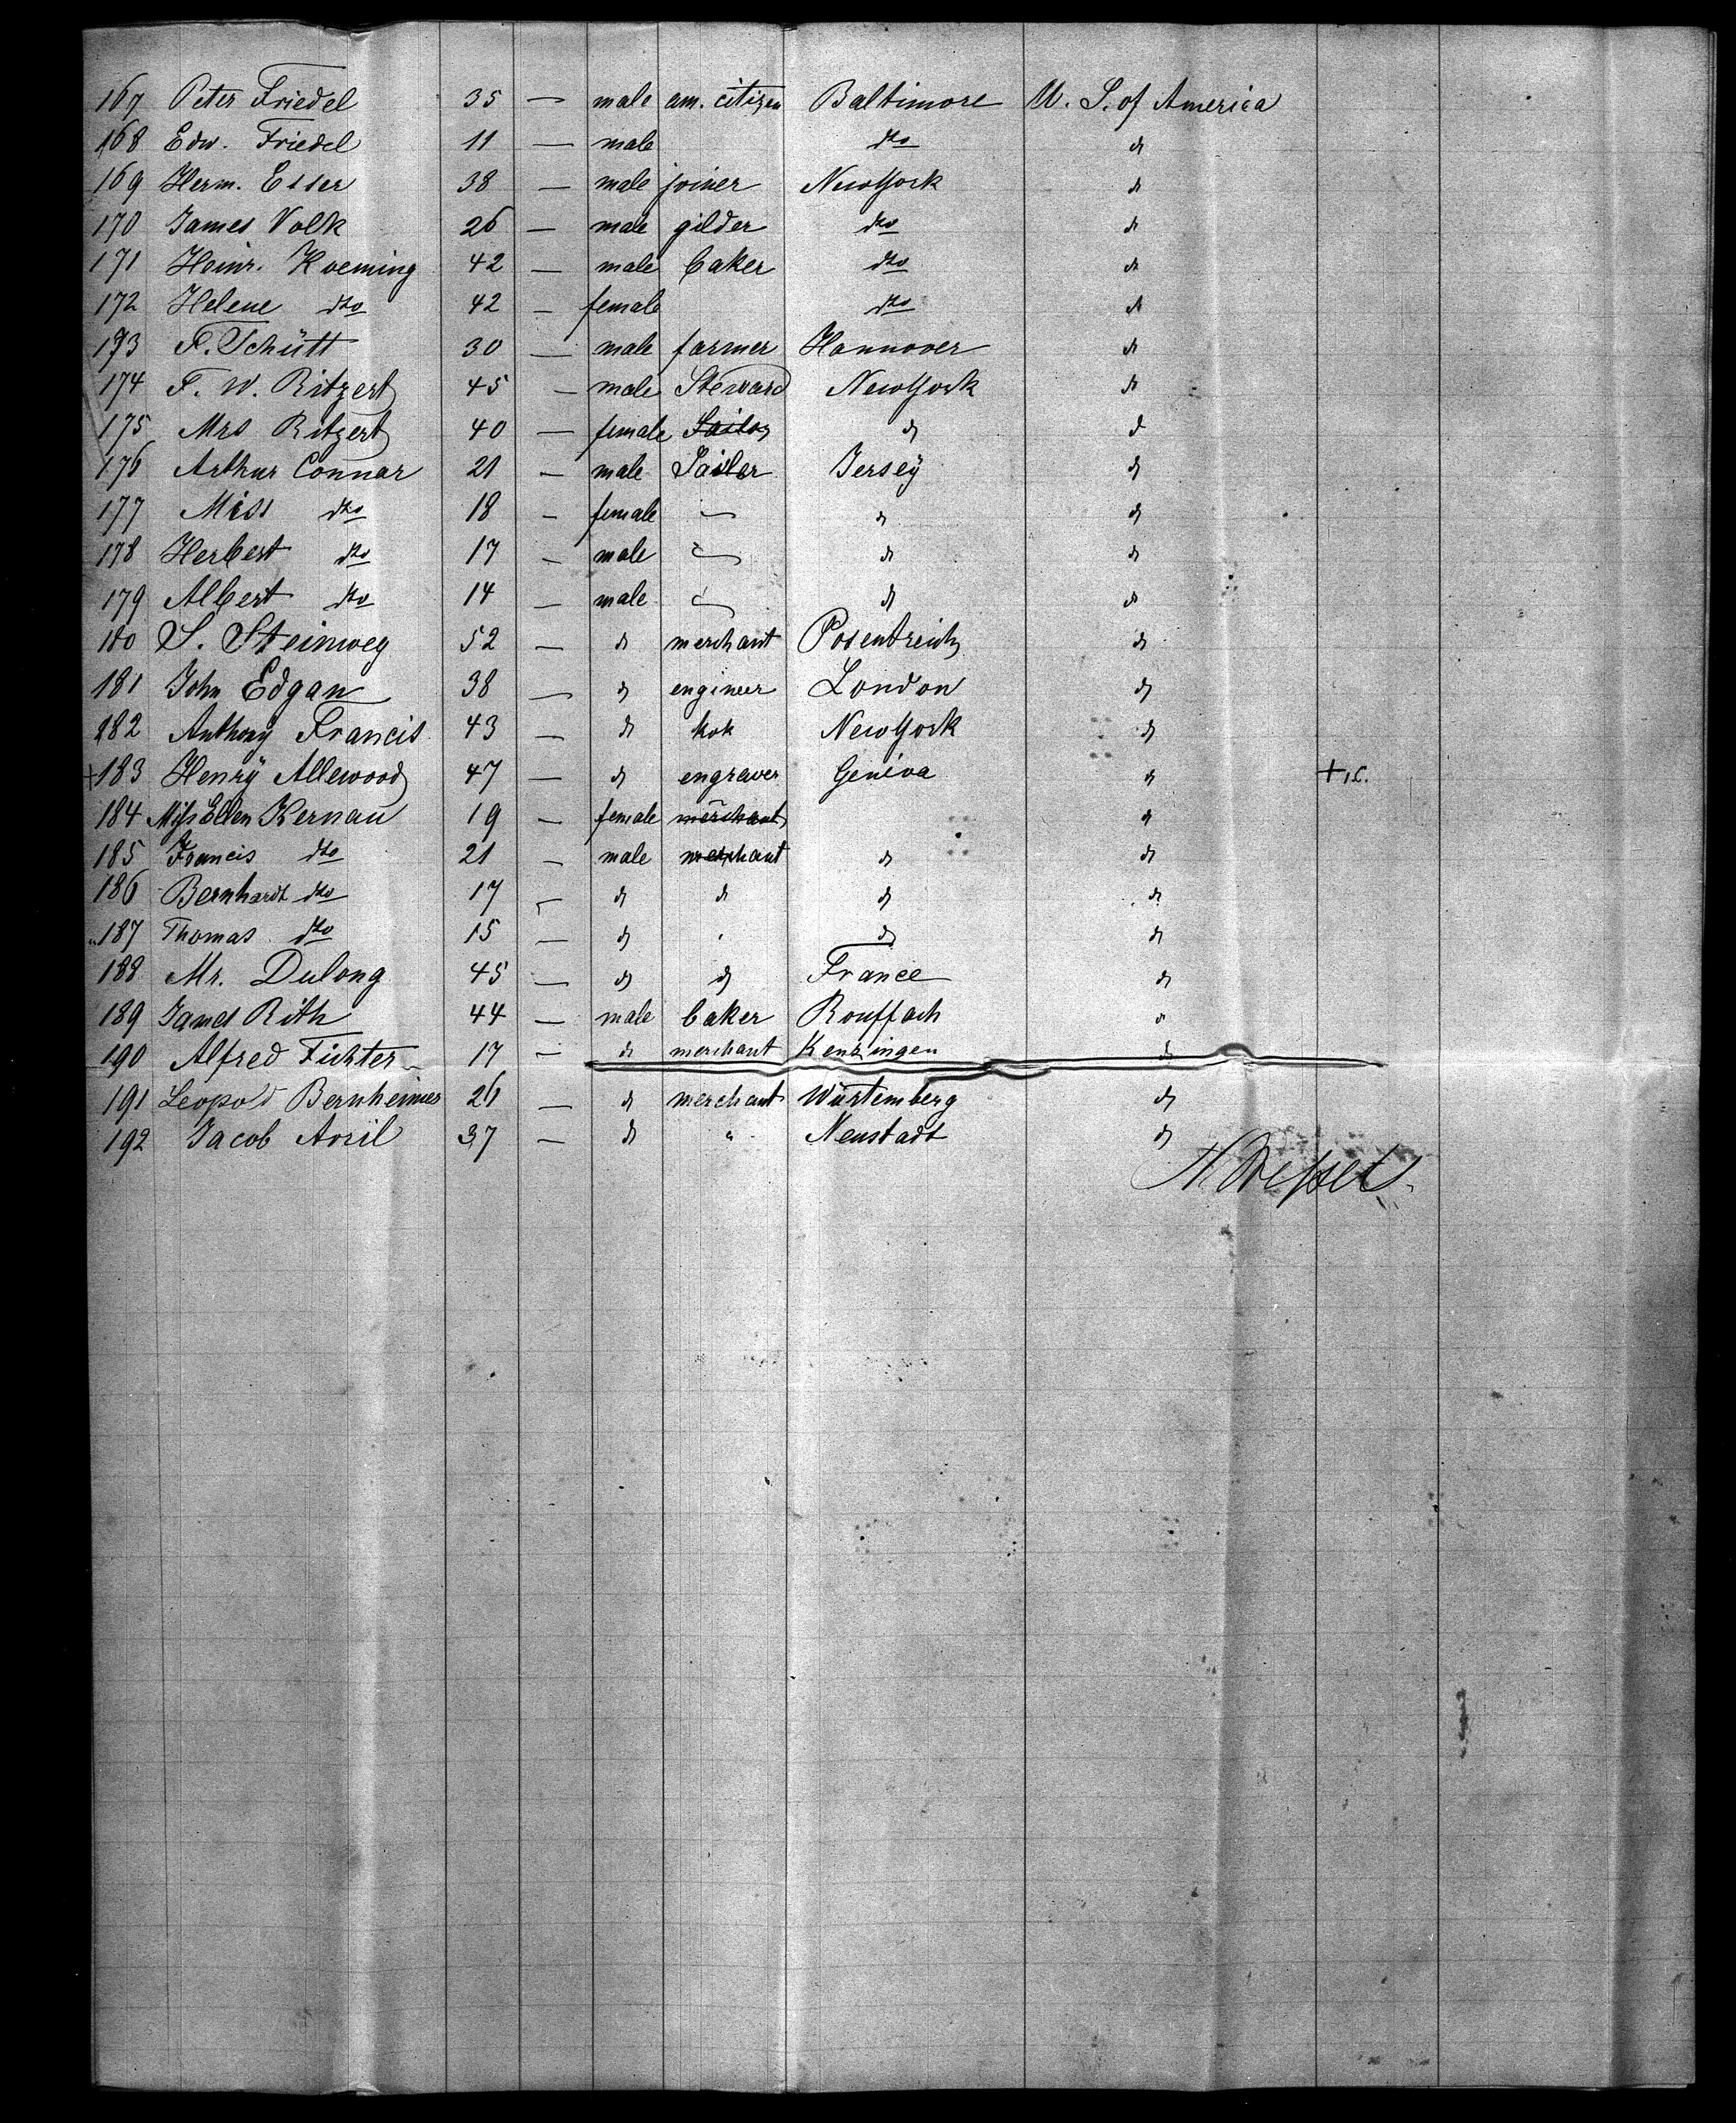 167 Peter Friedel 35 — male am. citizen Baltimore U. S. of America
168 Edw. Friedel 11 — male dto d
169 Herm. Esser 38 — male joiner NewYork d
170 James Volk 26 — male gilder dto d
171 Heinr. Koeming 42 — male baker dto d
172 Helene dto 42 — female dto d
173 F. Schütt 30 — male farmer Hannover d
174 F. W. Ritzert 45 — male Steward NewYork d
175 Mrs Ritzert 40 — female Sailor d d
176 Arthur Connar 21 — male Sailer Jersey d
177 Miss dto 18 — female — d d
178 Herbert dto 17 — male — d d
179 Albert dto 14 — male — d d
180 S. Steinweg 52 — d merchant d
181 John Edgan 38 — d engineer London d
182 Anthony Francis 43 — d kok NewYork d
+183 Henrÿ Allewood 47 — d engraver Geniva d +
184 Miss Ellen Kernau 19 — female merchant d
185 Francis dto 21 — male merchant d d
186 Bernhardt dto 17 — d d d d
187 Thomas dto 15 — d d d
188 Mr. Dulong 45 — d d France d
189 James Rith 44 — male baker Rouffach d
190 Alfred Fichter 17 — d merchant Kenzingen d
191 Leopold Bernheimer 26 — d merchant Würtemberg d
192 Jacob Avril 37 — d " Neustadt d